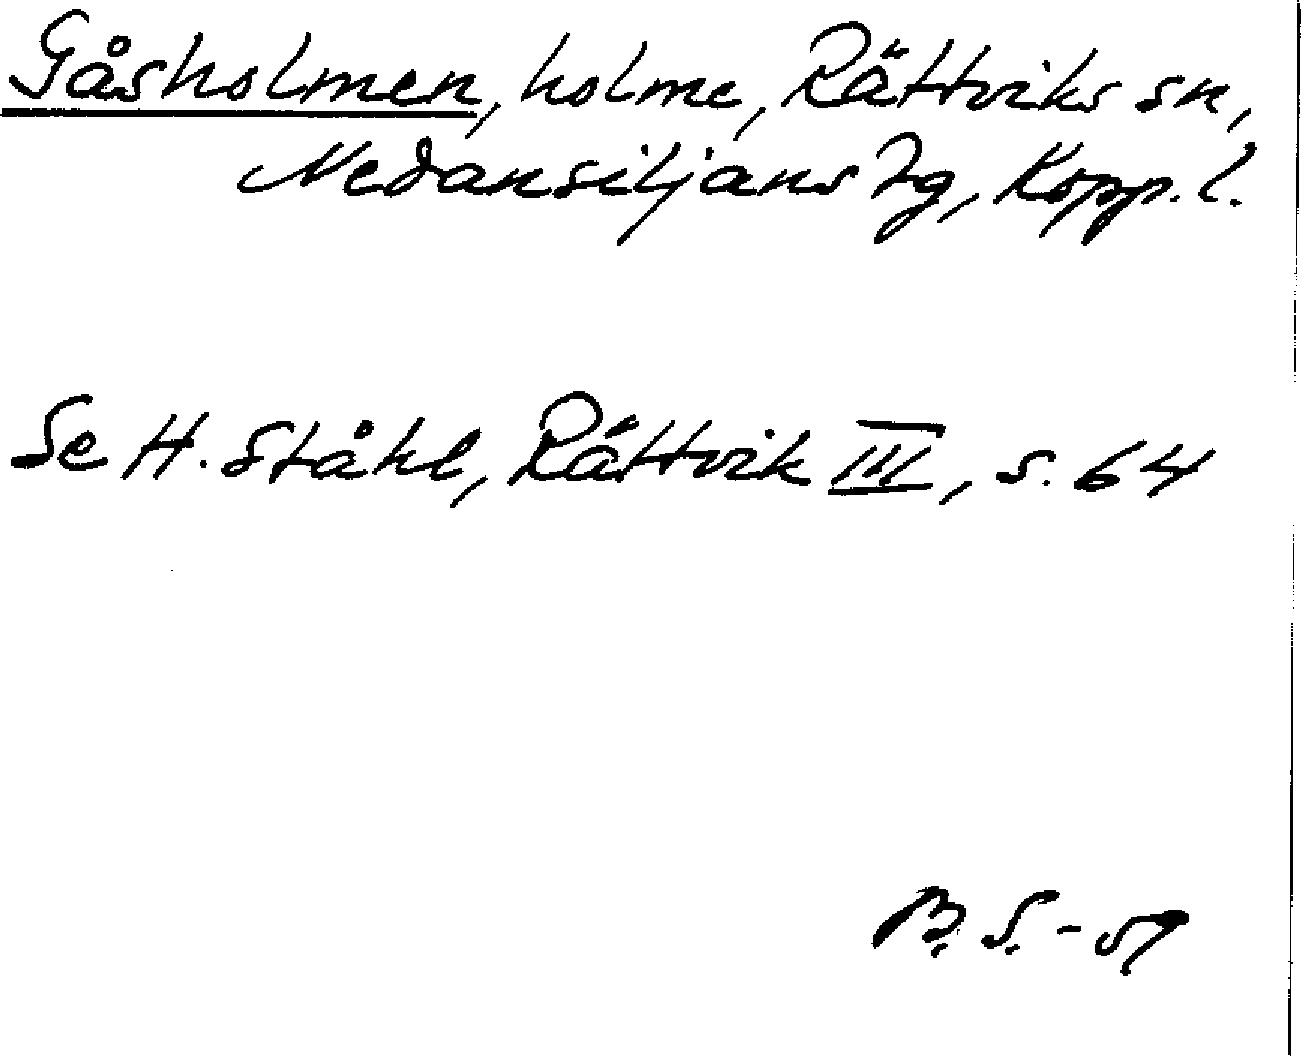 Gåsholmen, holme, Rättviks sn,
Nedansiljans tg, Kopp. l.
Se H. Ståhl, Rättvik III, s. 64
B. S. - 59